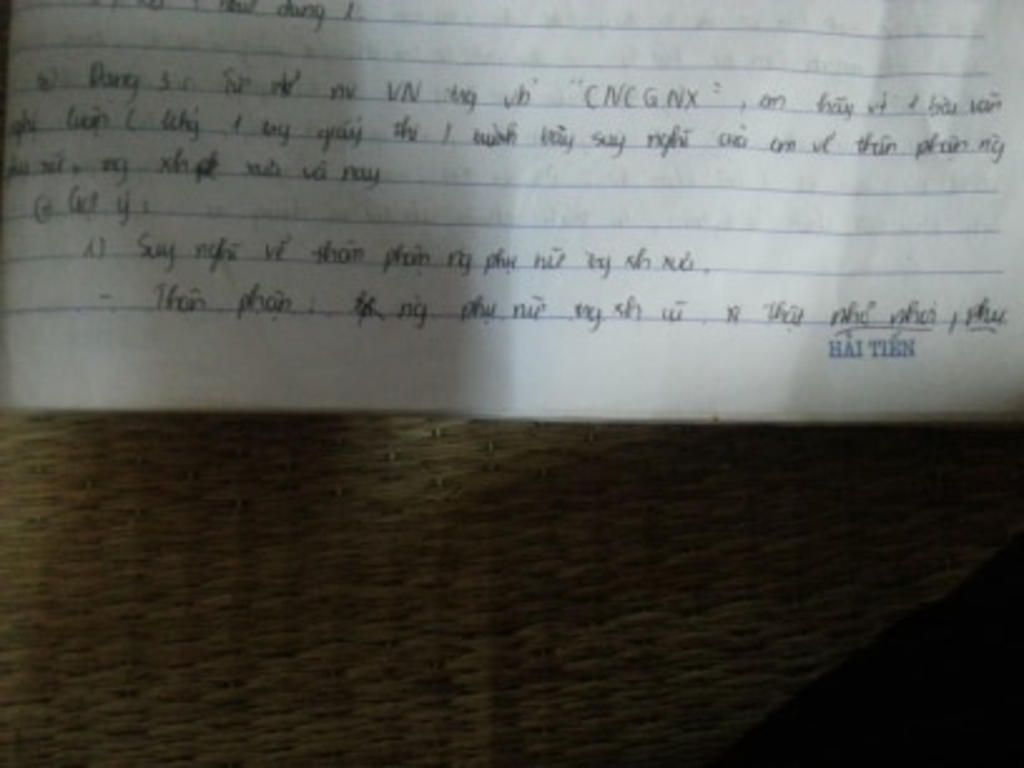 như dạng 1.
Dạng 3: Từ nv VN trg vb "CNCGNX", em hãy 1 bài văn
nghị luận ( 1 trg giấy thi ) trình bày suy nghĩ của em về thân phận ng
phụ nữ trg xh xưa và nay
Gợi ý:
1) Suy nghĩ về thân phận ng phụ nữ trg xh xưa.
- Thân phận: ng phụ nữ trg xh cũ thấy nhỏ nhoi, phụ
HẢI TIẾN